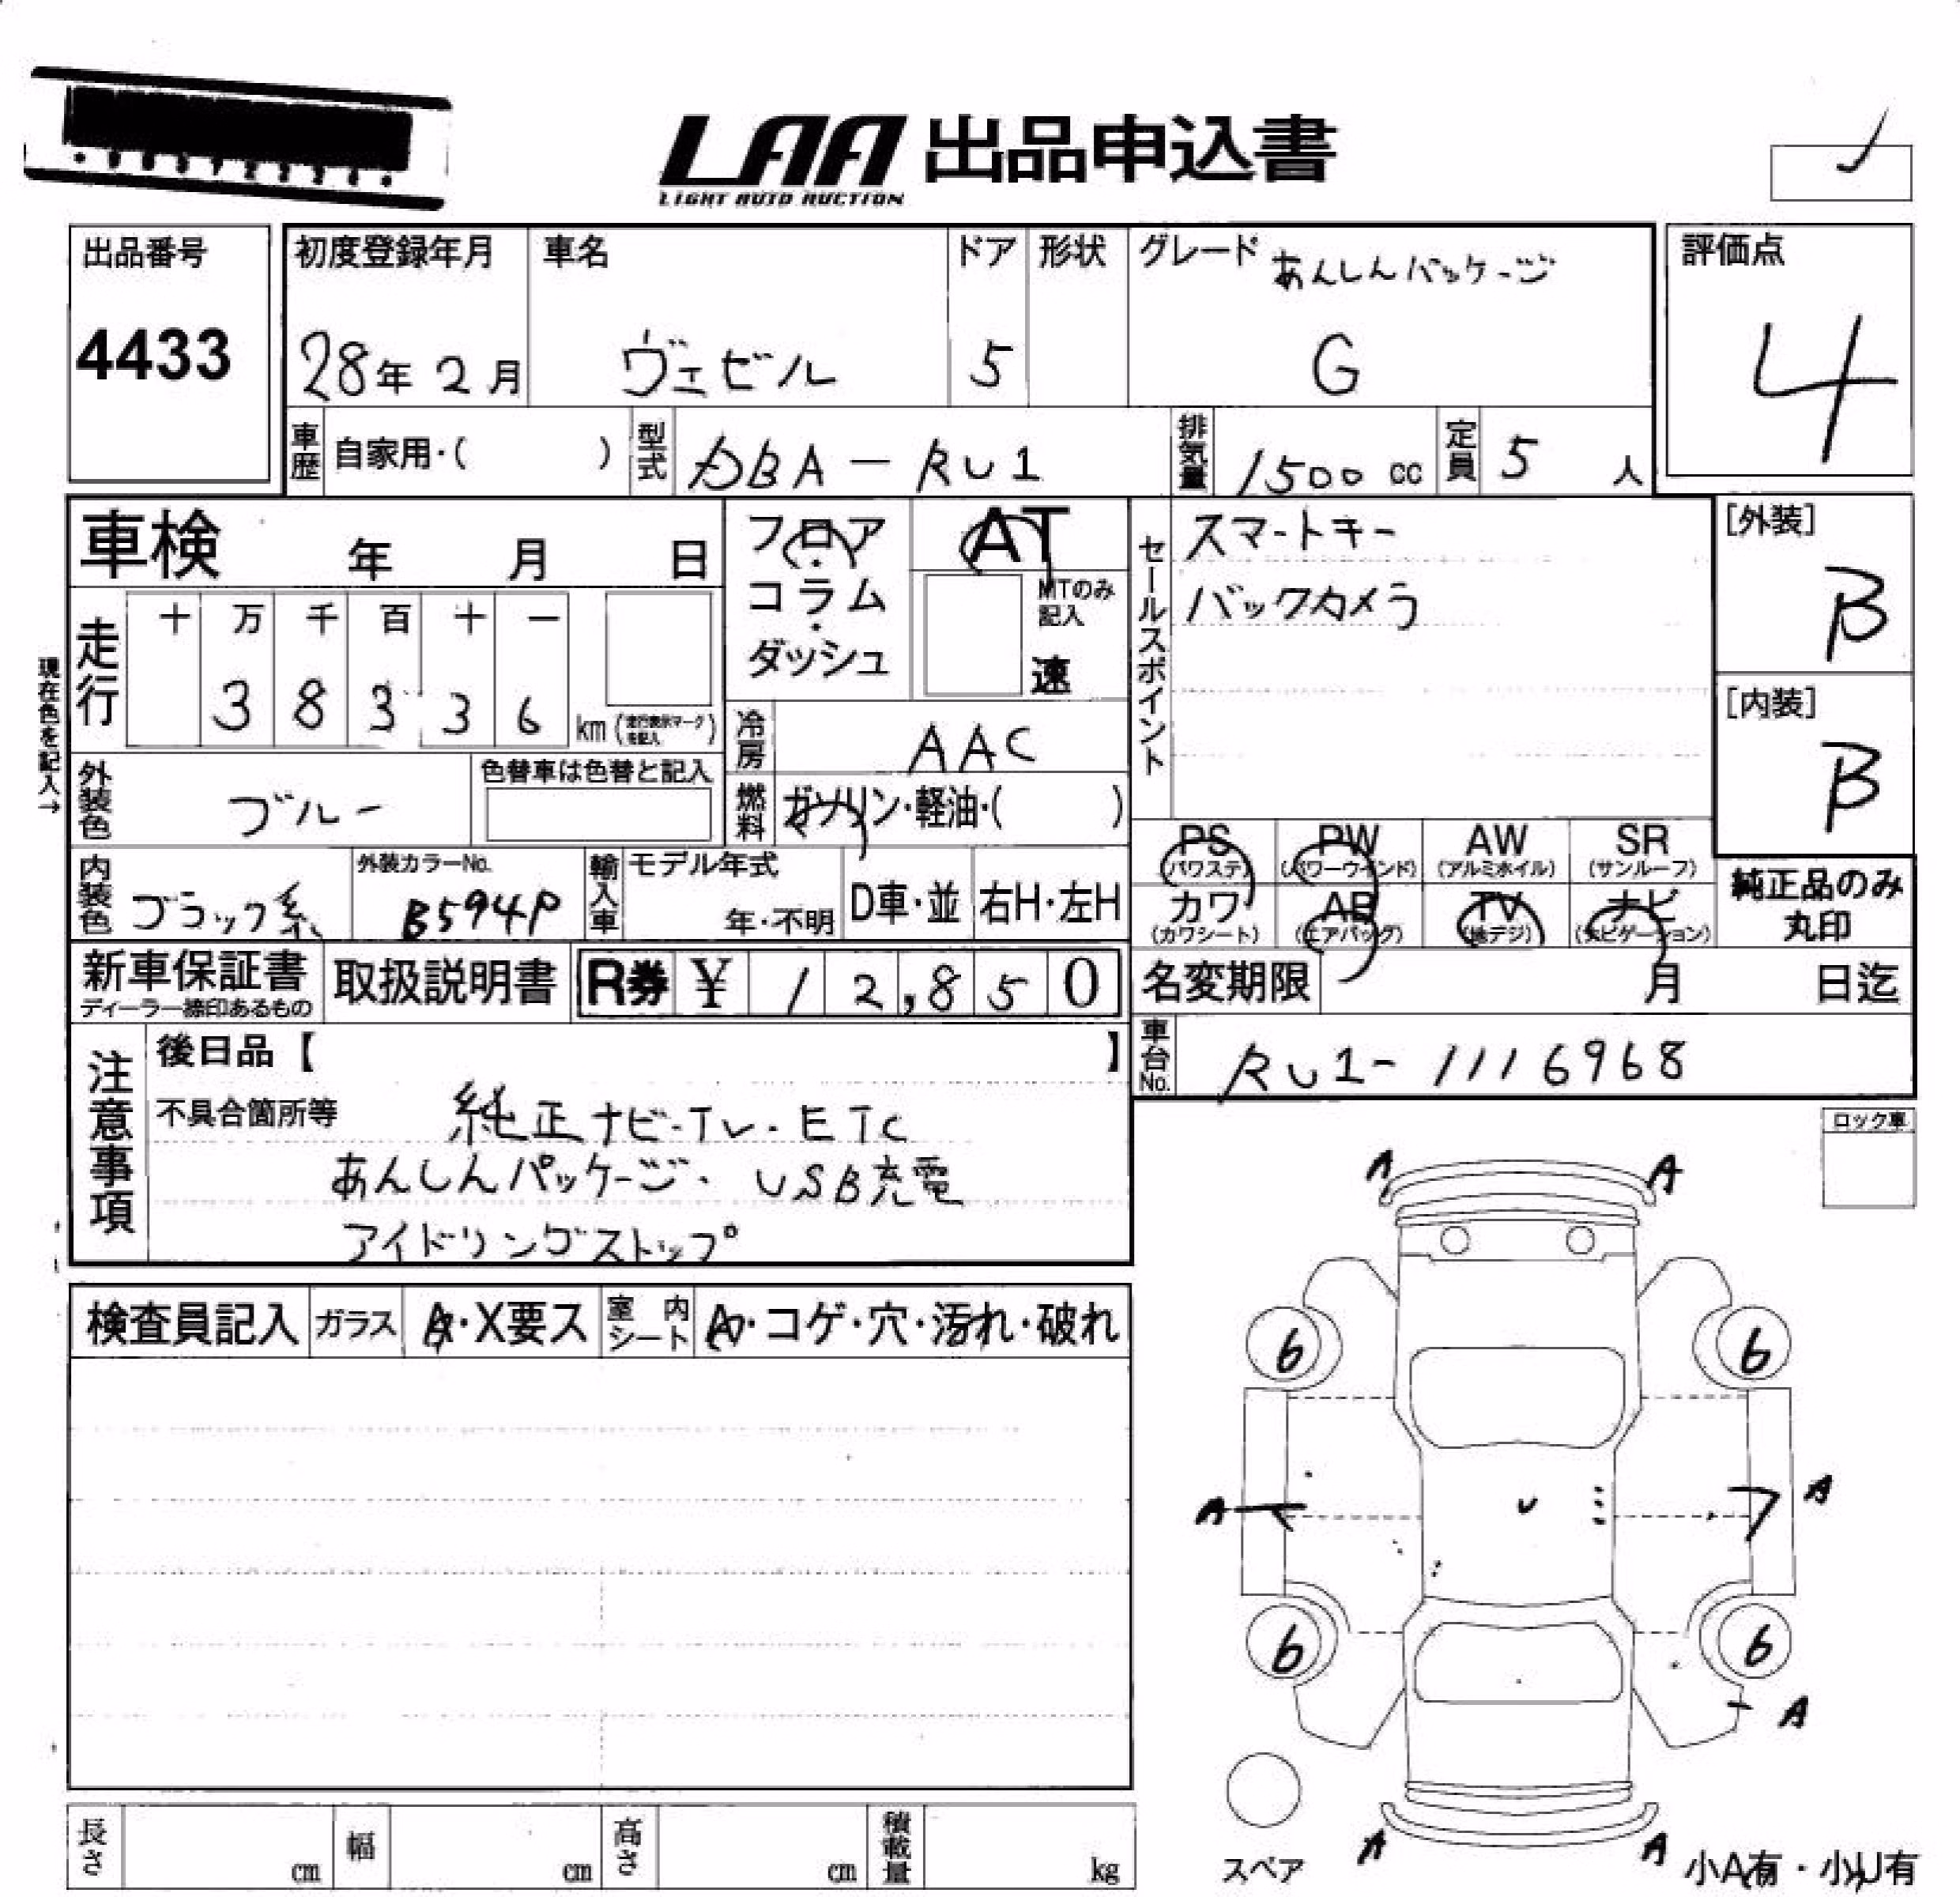 LAA 出品申込書
LIGHT AUTO AUCTION
出品番号
4433
初度登録年月
28年 2月
車名
ヴェゼル
ドア
5
形状
グレード あんしんパッケージ
G
評価点
4
車歴 自家用・( )
型式 DBA-RU1
排気量 1500 cc
定員 5 人
車検 年 月 日
フロア・コラム・ダッシュ
AT
MTのみ記入
速
セールスポイント
スマートキー
バックカメラ
[外装]
B
[内装]
B
現在色を記入→
走行
十 万 千 百 十 一
3 8 3 3 6
km (走行表示マークを記入)
冷房 AAC
外装色 ブルー
色替車は色替と記入
燃料 ガソリン・軽油・( )
内装色 ブラック系
外装カラーNo.
B594P
輸入車
モデル年式
年・不明
D車・並
右H・左H
PS (パワステ)
PW (パワーウインド)
AW (アルミホイル)
SR (サンルーフ)
カワ (カワシート)
AB (エアバッグ)
TV (地デジ)
ナビ (ナビゲーション)
純正品のみ
丸印
新車保証書
ディーラー捺印あるもの
取扱説明書
R券 ¥ 12,850
名変期限 月 日迄
車台No. RU1-1116968
注意事項
後日品【 】
不具合箇所等
純正ナビ・TV・ETC
あんしんパッケージ・USB充電
アイドリングストップ
ロック車
検査員記入
ガラス A・X要ス
室内シート A・コゲ・穴・汚れ・破れ
A A
6 6
A A
6 6
A
A A
スペア
小A有・小U有
長さ cm
幅 cm
高さ cm
積載量 kg